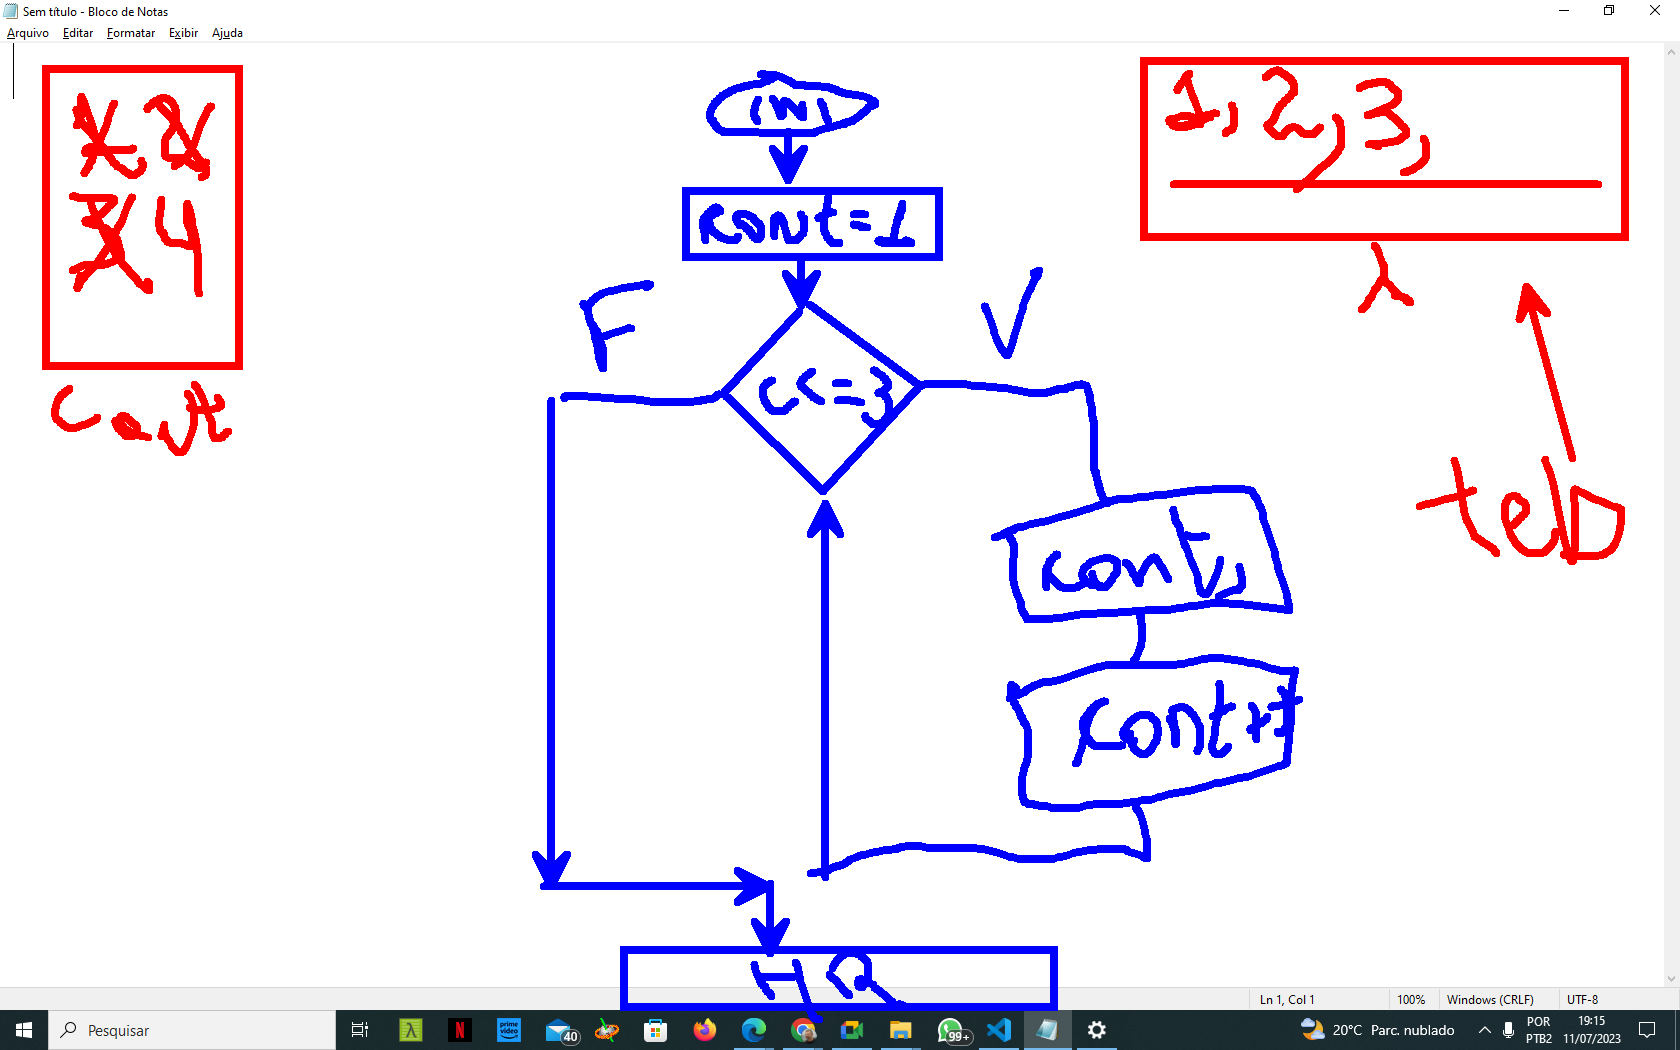 Sem título - Bloco de Notas
Arquivo Editar Formatar Exibir Ajuda
1 2
3 4
Cont
INI
cont=1
F
V
C<=3
cont,
1, 2, 3,
λ
Ln 1, Col 1
100%
Windows (CRLF)
UTF-8
Pesquisar
λ
N
prime video
40
99+
20°C Parc. nublado
POR
PTB2
19:15
11/07/2023